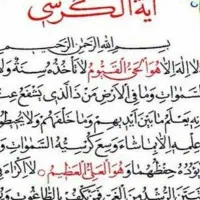 آية الكرسي
بسم الله الرحمن الرحيم
لا اله الا هو الحي القيوم لا تأخذه سنة ولا
السموات وما في الارض من ذا الذي يشفع
يعلم ما بين ايديهم وما خلفهم ولا
علمه الا بما شاء وسع كرسيه السموات و
يؤده حفظهما وهو العلي العظيم لا اكراه في
الرشد من الغي فمن يكفر بالطاغوت